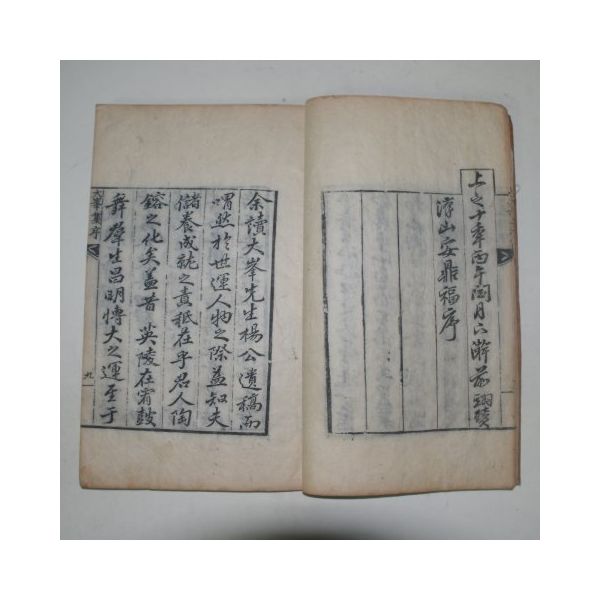 上之十年丙午閏月下澣前翊贊
漢山安鼎福序
余讀大峯先生楊公遺稿而
喟然於世運人物之際益知夫
儲養成就之責秪在乎君人陶
鎔之化矣盖昔 英陵在宥鼓
舞群生昌明愽大之運至于
大峯集序
九